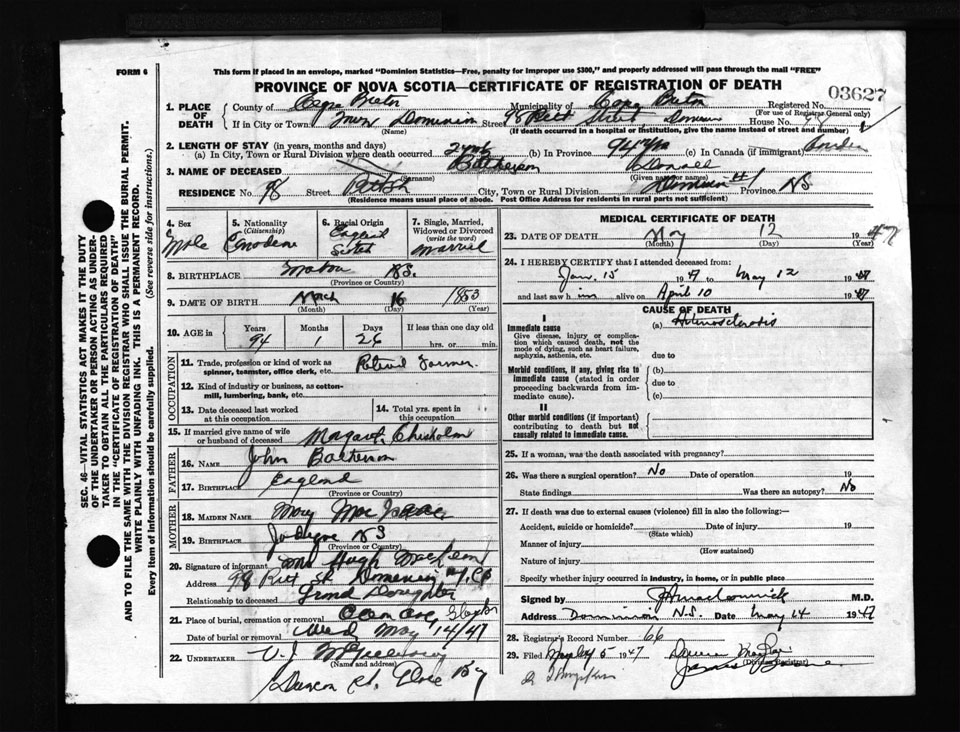 FORM 6
This form if placed in an envelope, marked "Dominion Statistics—Free, penalty for improper use $300," and properly addressed will pass through the mail "FREE"
PROVINCE OF NOVA SCOTIA—CERTIFICATE OF REGISTRATION OF DEATH
03627
1. PLACE OF DEATH
County of Cape Breton Municipality of Cape Breton Registered No.
(For use of Registrar General only)
If in City or Town Town Dominion Street 98 Pitt Street, Dominion House No. 98
(Name) (If death occurred in a hospital or institution, give the name instead of street and number)
2. LENGTH OF STAY (in years, months and days)
(a) In City, Town or Rural Division where death occurred (b) In Province 94 yrs (c) In Canada (if immigrant)
3. NAME OF DECEASED
(Surname) (Given name or names)
RESIDENCE No. 98 Street City, Town or Rural Division Dominion #1 Province NS
(Residence means usual place of abode. Post Office Address for residents in rural parts not sufficient)
4. Sex Male
5. Nationality (Citizenship)
6. Racial Origin
7. Single, Married, Widowed or Divorced (write the word) Married
8. BIRTHPLACE Mabou NS.
(Province or Country)
9. DATE OF BIRTH March 16 1853
(Month) (Day) (Year)
10. AGE in Years Months Days If less than one day old
94 1 26 hrs. or min.
OCCUPATION
11. Trade, profession or kind of work as spinner, teamster, office clerk, etc. Retired Farmer
12. Kind of industry or business, as cotton-mill, lumbering, bank, etc.
13. Date deceased last worked at this occupation
14. Total yrs. spent in this occupation
15. If married give name of wife or husband of deceased Margaret Chisholm
FATHER
16. NAME John
17. BIRTHPLACE England
(Province or Country)
MOTHER
18. MAIDEN NAME Mary Mac Isaac
19. BIRTHPLACE NS
(Province or Country)
20. Signature of informant Mrs Hugh
Address 98 Pitt St Dominion #1, CB
Relationship to deceased Grand Daughter
21. Place of burial, cremation or removal
Date of burial or removal Wed May 14/47
22. UNDERTAKER V. J.
(Name and address)
Glace Bay
MEDICAL CERTIFICATE OF DEATH
23. DATE OF DEATH May 12 1947
(Month) (Day) (Year)
24. I HEREBY CERTIFY that I attended deceased from:
Jan. 15 1947 to May 12 1947
and last saw him alive on April 10 1947
CAUSE OF DEATH
I
Immediate cause
Give disease, injury or complication which caused death, not the mode of dying, such as heart failure, asphyxia, asthenia, etc.
(a) Arteriosclerosis
due to
Morbid conditions, if any, giving rise to immediate cause (stated in order proceeding backwards from immediate cause).
(b)
due to
(c)
II
Other morbid conditions (if important) contributing to death but not causally related to immediate cause.
25. If a woman, was the death associated with pregnancy?
26. Was there a surgical operation? No Date of operation 19
State findings Was there an autopsy? No
27. If death was due to external causes (violence) fill in also the following:—
Accident, suicide or homicide? Date of injury 19
(State which)
Manner of injury
(How sustained)
Nature of injury
Specify whether injury occurred in industry, in home, or in public place
Signed by M.D.
Address Dominion N.S. Date May 14 1947
28. Registrar's Record Number 66
29. Filed 1947
(Division Registrar)
SEC. 46—VITAL STATISTICS ACT MAKES IT THE DUTY
OF THE UNDERTAKER OR PERSON ACTING AS UNDERTAKER TO OBTAIN ALL THE PARTICULARS REQUIRED
IN THE "CERTIFICATE OF REGISTRATION OF DEATH"
AND TO FILE THE SAME WITH THE DIVISION REGISTRAR WHO SHALL ISSUE THE BURIAL PERMIT.
WRITE PLAINLY WITH UNFADING INK. THIS IS A PERMANENT RECORD.
Every item of information should be carefully supplied. (See reverse side for instructions.)